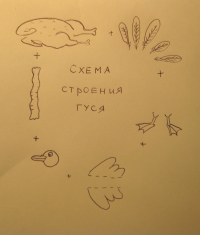 СХЕМА
СТРОЕНИЯ
ГУСЯ